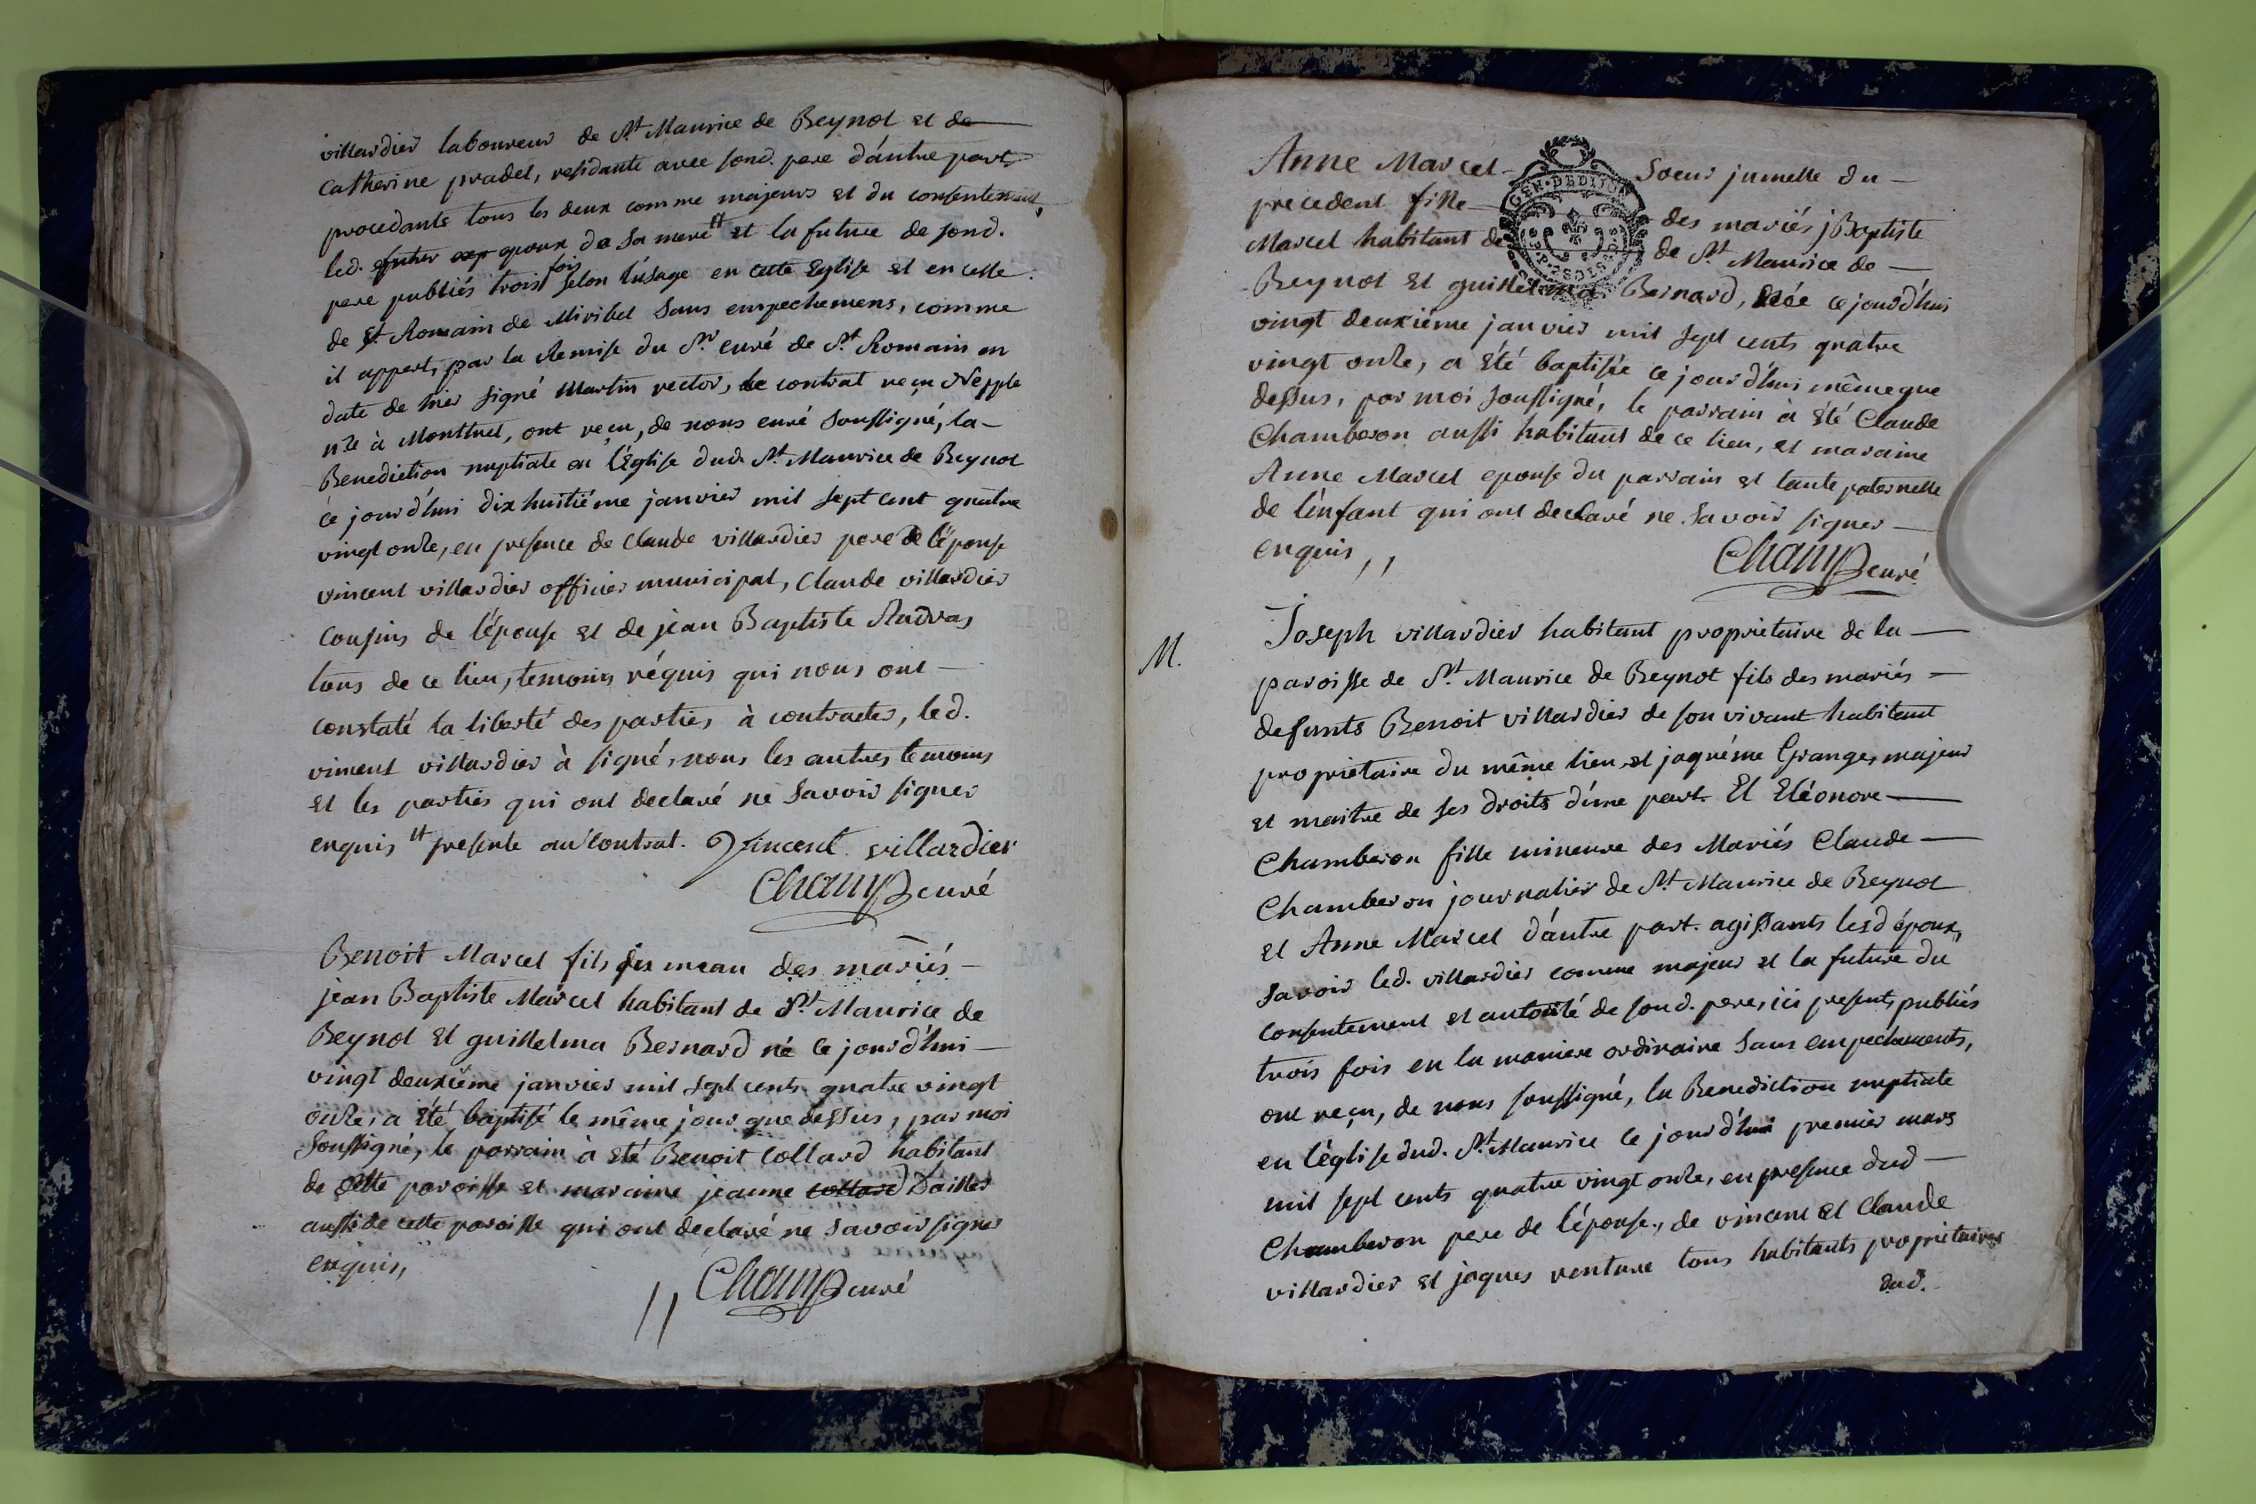 villardier laboureur de St Maurice de Beynot et de
Catherine pradel, residante avec sond. pere d'autre part
procedants tous les deux comme majeurs et du consentement,
led. epoux de sa mere et la future de sond.
pere publiés trois fois selon l'usage en cette Eglise et en celle
de St Romain de Miribel sans empechemens, comme
il appert, par la Remise du Sr curé de St Romain en
date de hier signé Martin rector, le contrat reçu Nepple
nre à Montluel, ont reçu, de nous curé soussigné, la
Benediction nuptiale en l'Eglise dud. St Maurice de Beynot
ce jourd'hui dix huitiéme janvier mil sept cent quatre
vingt onze, en presence de Claude villardier pere de l'épouse
vincent villardier officier municipal, Claude villardier
cousins de l'épouse et de jean Baptiste Audras
tous de ce lieu, temoins réquis qui nous ont
constaté la liberté des parties à contracter, led.
vincent villardier à signé, nons les autres temoins
et les parties qui ont declaré ne savoir signer
enquis presents au contrat. Vincent villardier
Champ curé
Benoit Marcel fils jumeau des mariés
jean Baptiste Marcel habitant de St Maurice de
Beynot et guillelma Bernard né ce jourd'hui
vingt deuxiéme janvier mil sept cents quatre vingt
onze, a été baptisé le même jour que dessus, par moi
soussigné, le parrain à été Benoit Collard habitant
de cette paroisse et maraine jeanne collard Dailler
aussi de cette paroisse qui ont declaré ne savoir signer
enquis,
Champ curé
Anne Marcel soeur jumelle du
precedent fille des mariés jBaptiste
Marcel habitant de de St Maurice de
Beynot et guillelma Bernard, née ce jourd'hui
vingt deuxiéme janvier mil sept cents quatre
vingt onze, a été baptisée ce jourd'hui même que
dessus, par moi soussigné, le parrain à été Claude
Chamberon aussi habitant de ce lieu, et maraine
Anne Marcel epouse du parrain et tante paternelle
de l'enfant qui ont declaré ne savoir signer
enquis,,
Champ curé
GEN. DE DIJON
M.
Joseph villardier habitant proprietaire de la
paroisse de St Maurice de Beynot fils des mariés
defunts Benoit villardier de son vivant habitant
proprietaire du même lieu et jaqueme Grange, majeur
et maitre de ses droits d'une part. Et Eléonore
Chamberon fille mineure des Mariés Claude
Chamberon journalier de St Maurice de Beynot
et Anne Marcel d'autre part. agissants lesd époux,
savoir led. villardier comme majeur et la future du
consentement et autorité de sond. pere, ici present, publiés
trois fois en la maniere ordinaire sans empechements,
ont reçu, de nous soussigné, la Benediction nuptiale
en l'église dud. St Maurice ce jourd'hui premier mars
mil sept cents quatre vingt onze, en presence dud
Chamberon pere de l'épouse, de vincent et Claude
villardier et jaques venture tous habitants proprietaires
dud.